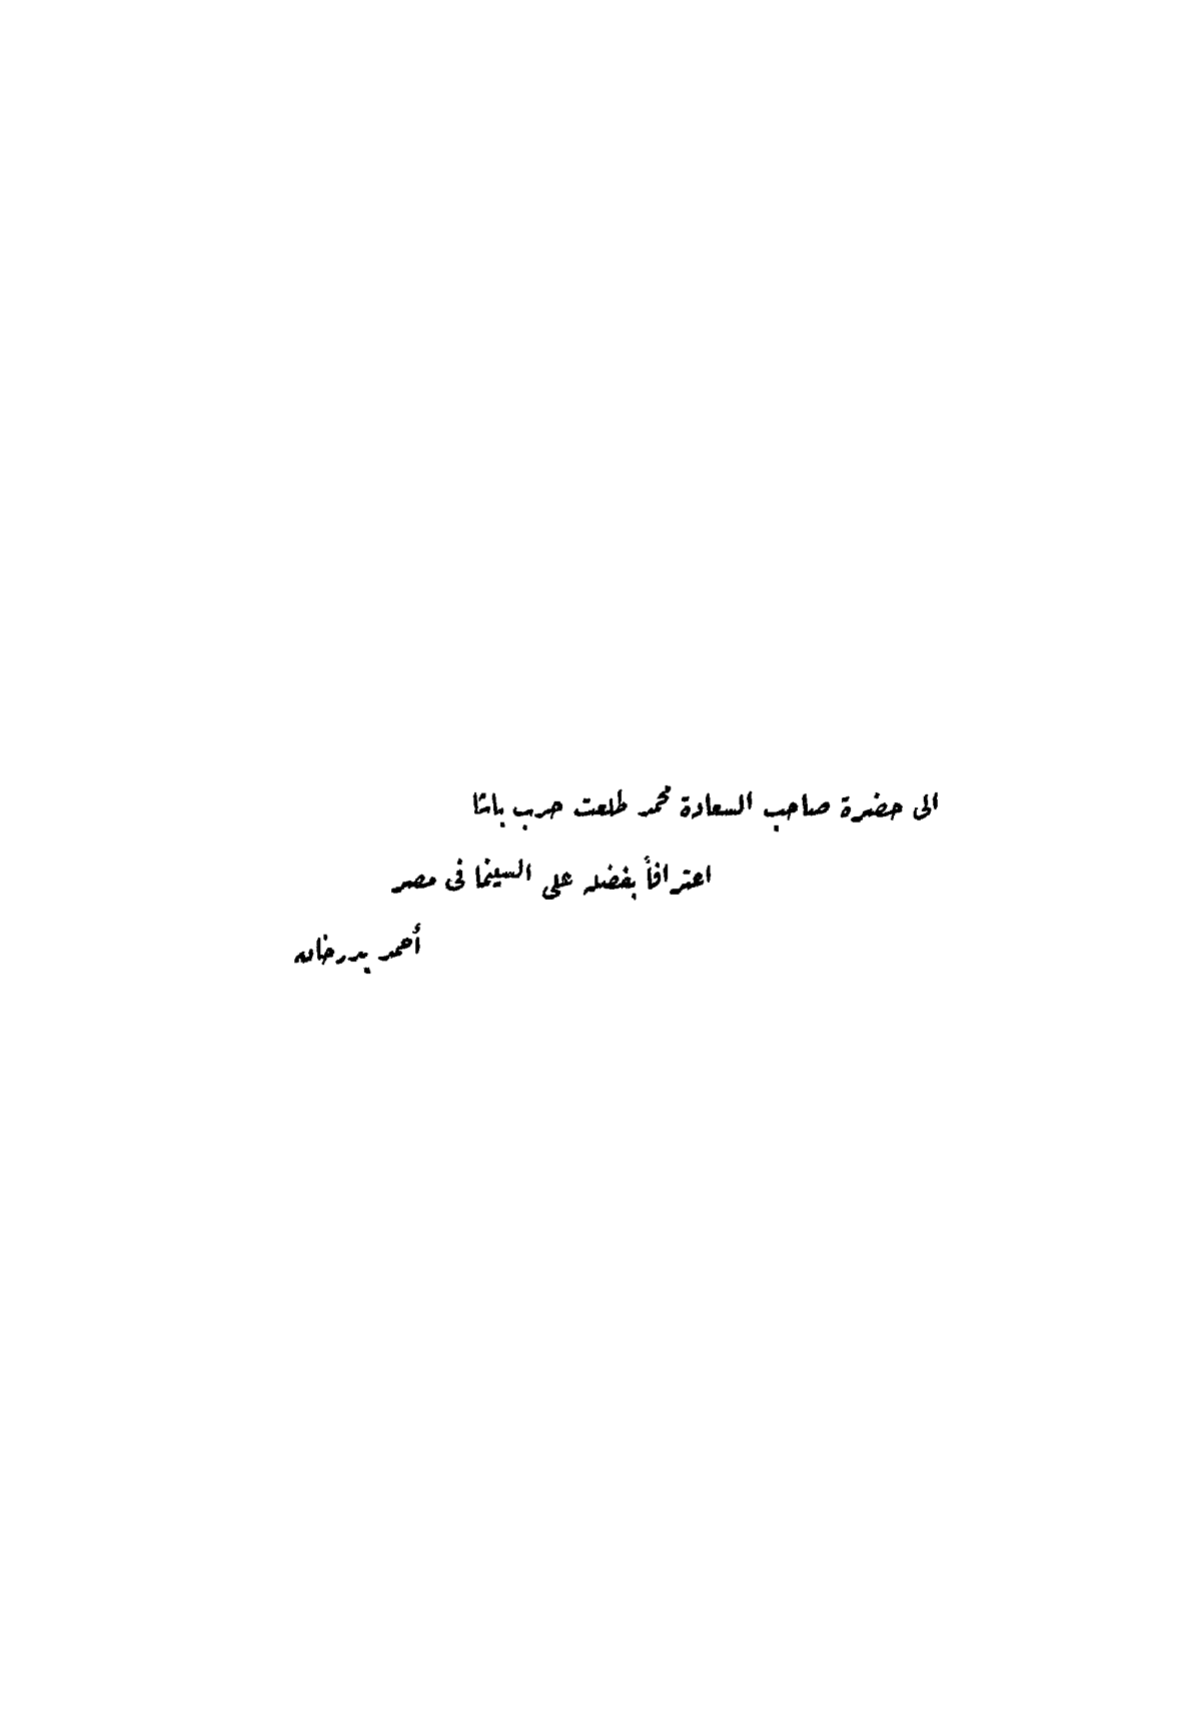 الى حضرة صاحب السعادة محمد طلعت حرب باشا
اعترافاً بفضله على السينما فى مصر
أحمد بدرخان